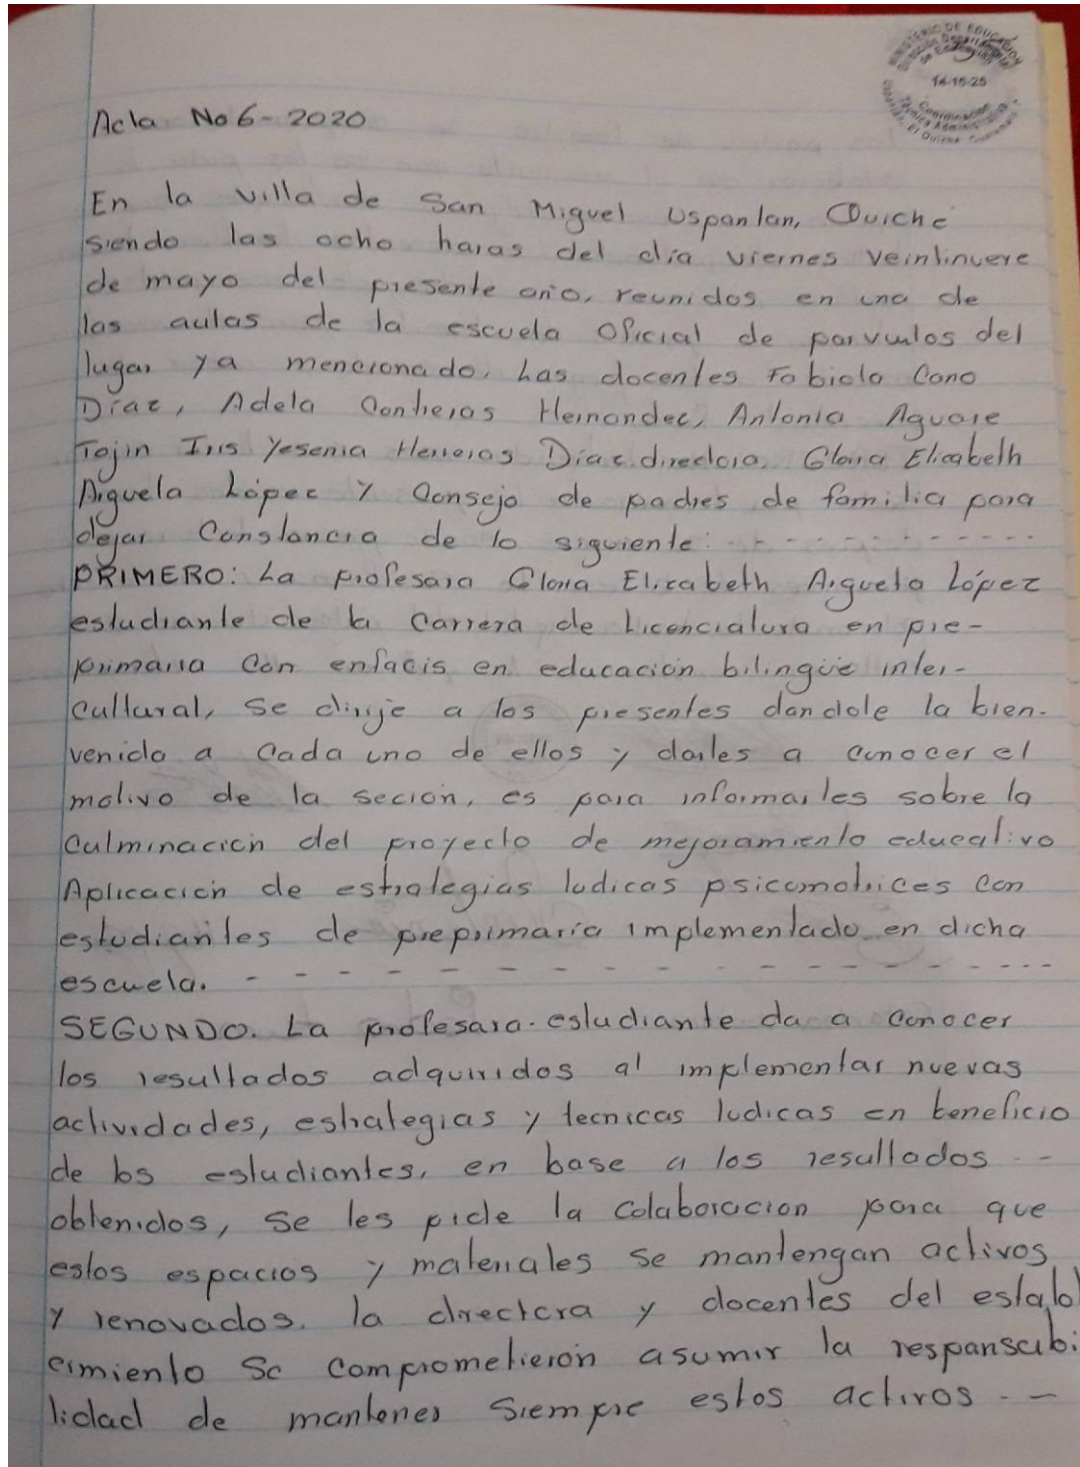 MINISTERIO DE EDUCACIÓN
Dirección Departamental
de Educación
14-15-25
Coordinación
Técnica Administrativa
Uspantán, El Quiché
Acta No 6- 2020
En la villa de San Miguel Uspantan, Quiché
siendo las ocho horas del día viernes veintinueve
de mayo del presente año, reunidos en una de
las aulas de la escuela Oficial de parvulos del
lugar ya mencionado, Las docentes Fabiola Cano
Díaz, Adela Contreras Hernandez, Antonia Aguare
Tojin Iris Yesenia Herreras Díaz directora, Gloria Elizabeth
Argueta López y Consejo de padres de familia para
dejar Constancia de lo siguiente: - - - - - - - - - -
PRIMERO: La profesora Gloria Elizabeth Argueta López
estudiante de la Carrera de Licenciatura en pre-
primaria Con enfacis en educación bilingüe inter-
cultural, se dirije a los presentes dandole la bien-
venida a Cada uno de ellos y darles a conocer el
motivo de la seción, es para informarles sobre la
Culminación del proyecto de mejoramiento educativo
Aplicación de estrategias ludicas psicomotrices con
estudiantes de preprimaria implementado en dicha
escuela. - - - - - - - - - - - - - - - -
SEGUNDO. La profesora-estudiante da a conocer
los resultados adquiridos al implementar nuevas
actividades, estrategias y tecnicas ludicas en beneficio
de los estudiantes, en base a los resultados - -
obtenidos, se les pide la colaboracion para que
estos espacios y materiales se mantengan activos
y renovados. la directora y docentes del establ
ecimiento se comprometieron asumir la responsabi
lidad de mantener siempre estos activos - -